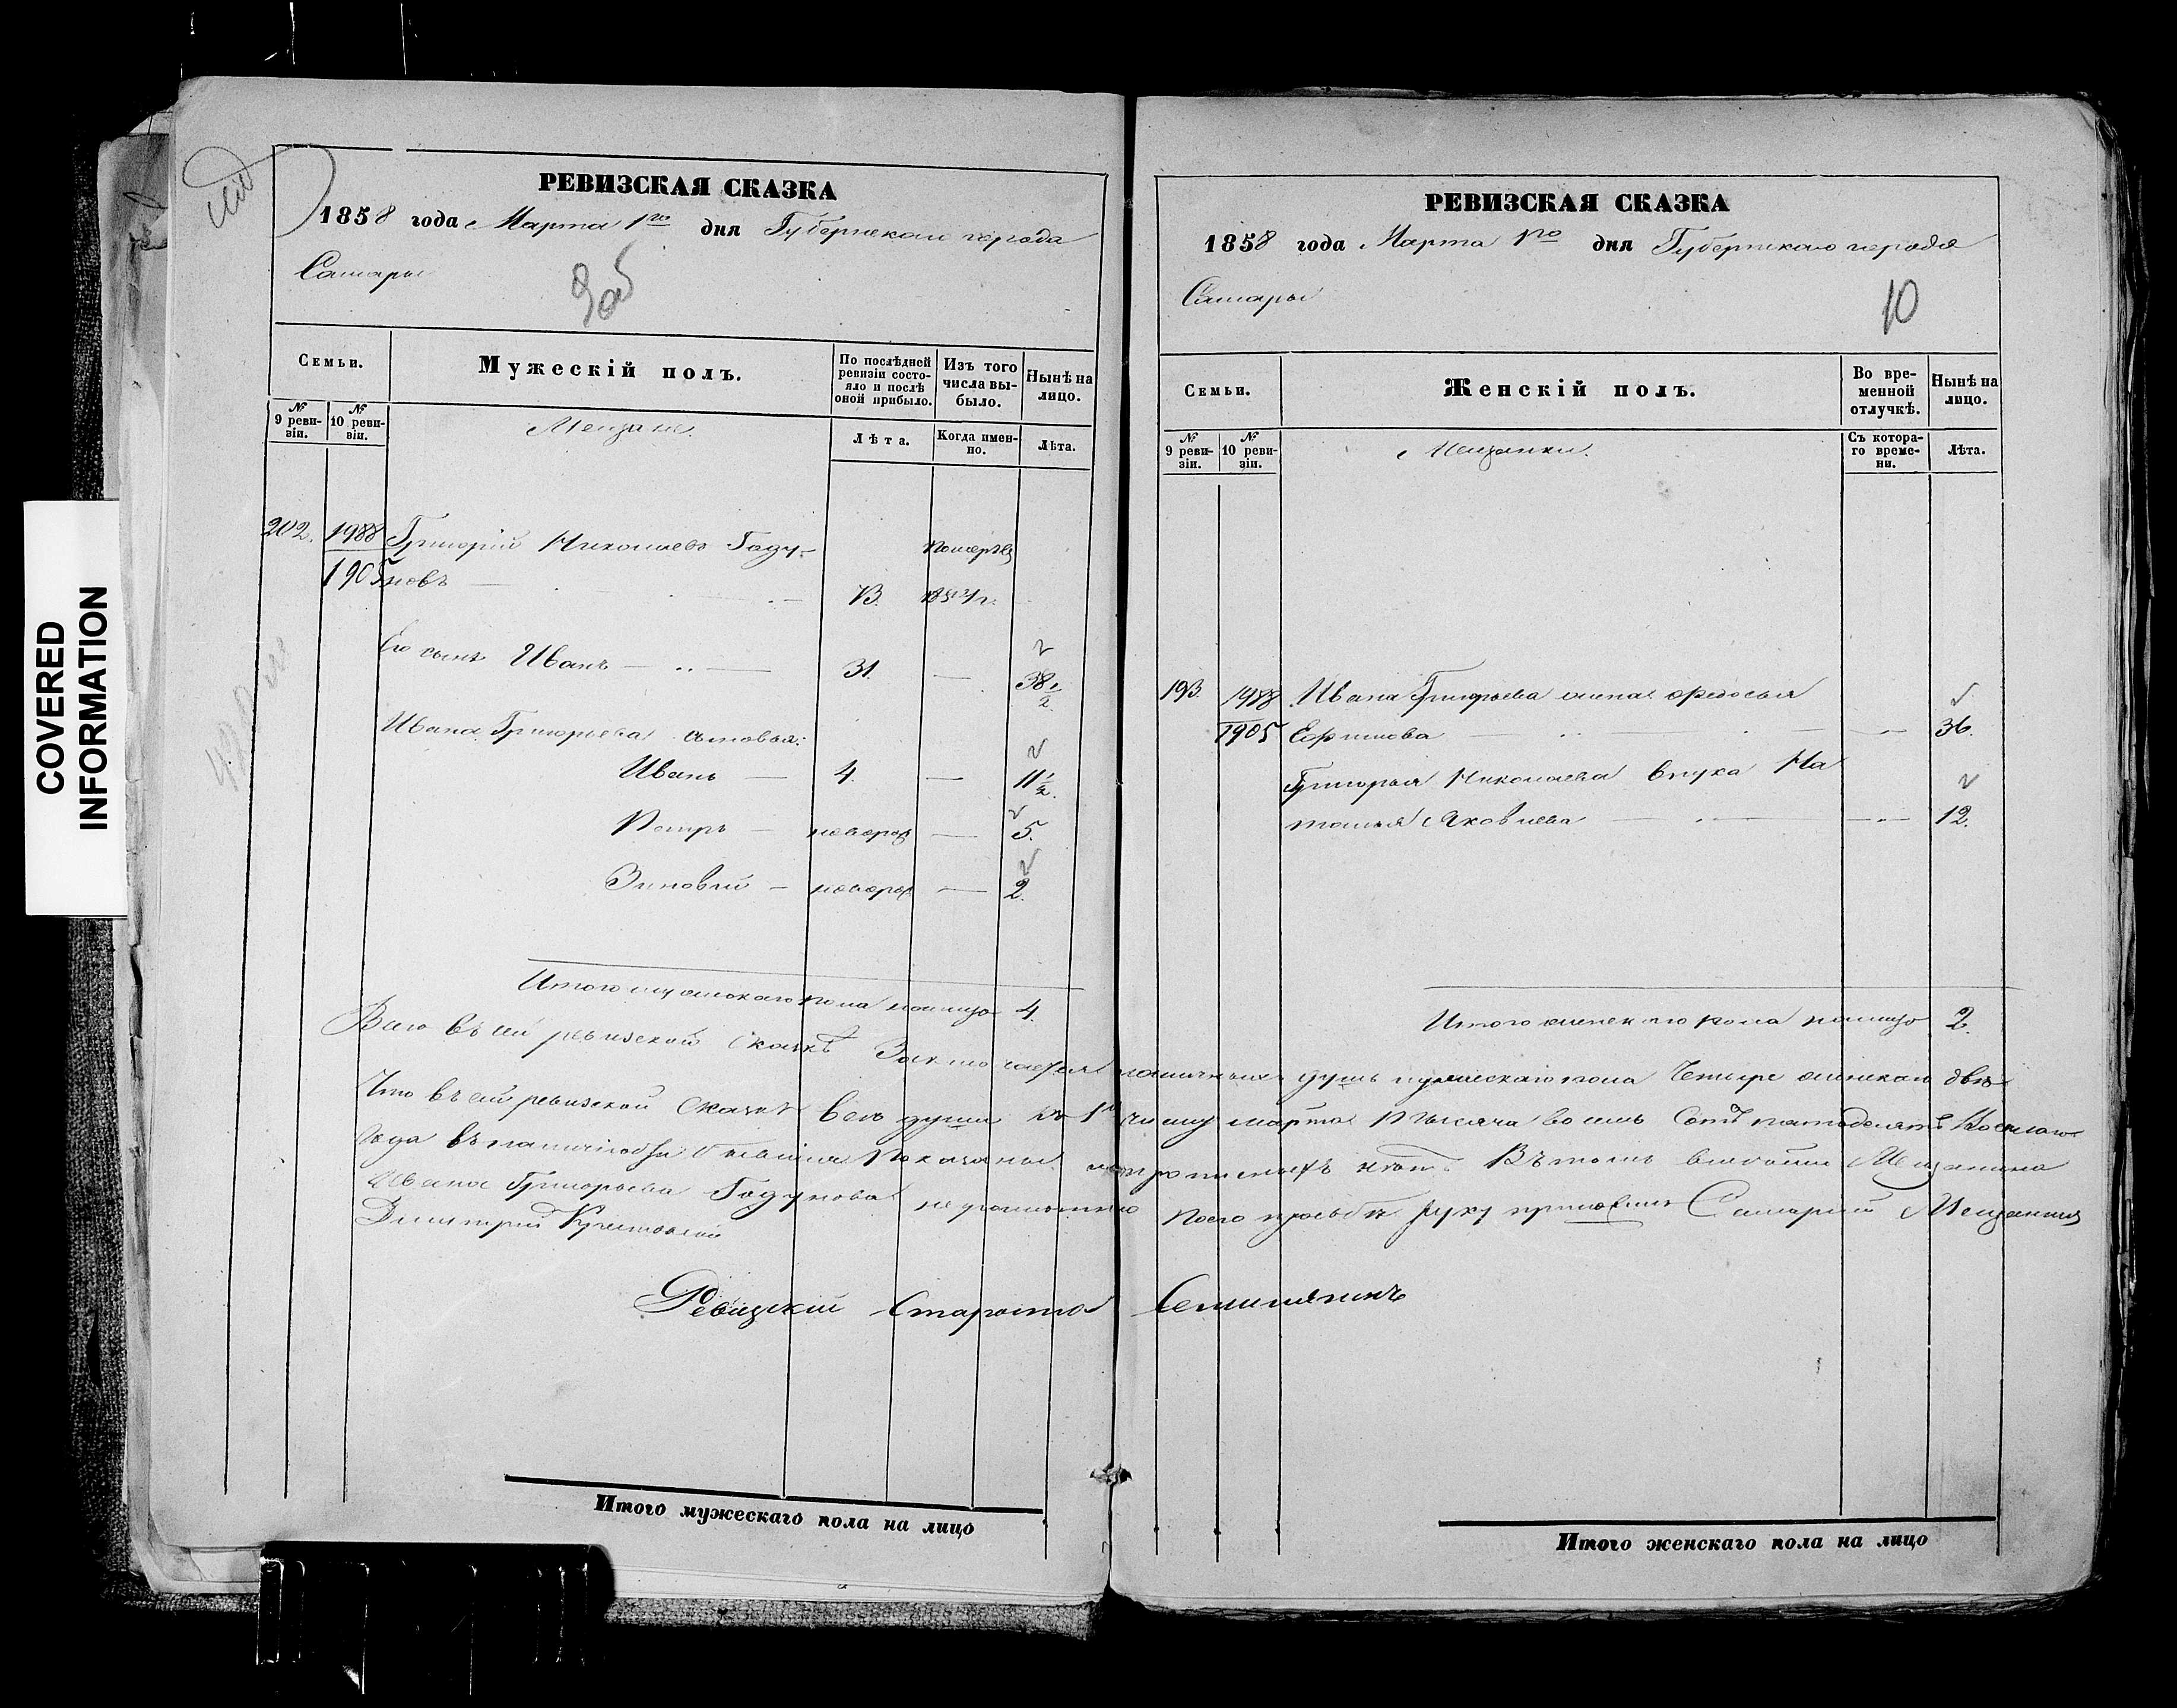 РЕВИЗСКАЯ СКАЗКА
1858 года Марта 1го дня Губернскаго города
Самары
9об
Семьи.
Мужескій полъ.
По послѣдней ревизіи состояло и послѣ оной прибыло.
Изъ того числа выбыло.
Нынѣ на лицо.
№ 9 ревизіи.
№ 10 ревизіи.
Мещане.
Лѣта.
Когда именно.
Лѣта.
202. 1988 Григорій Николаевъ Году-
1905 новъ
померъ
73. 185 г.
Его сынъ Иванъ — 31. — 38 1/2.
Ивана Григорьева сыновья:
Иванъ — 4. — 11 1/2.
Петръ — новорож — 5.
Зиновій — новорож — 2.
Итого мужескаго пола налицо 4.
РЕВИЗСКАЯ СКАЗКА
1858 года Марта 1го дня Губернскаго города
Самары
10
Семьи.
Женскій полъ.
Во временной отлучкѣ.
Нынѣ на лицо.
№ 9 ревизіи.
№ 10 ревизіи.
Мещанки.
Съ котораго времени.
Лѣта.
193. 1988 Ивана Григорьева жена Федосья
1905 Ефимова — 36.
Григорья Николаева внука На
талья Яковлева — 12.
Итого женскаго пола налицо 2.
Всего въ сей ревизской сказкѣ заключается наличныхъ душъ мужескаго пола четыре женскаго двѣ
Что въ сей ревизской сказкѣ всѣ души къ 1 числу марта тысяча восемь сотъ пятьдесятъ восьмаго
года въ наличности бывшія показаны и прописныхъ нѣтъ. Въ томъ вмѣсто Мещанина
Ивана Григорьева Годунова неграмотнаго по его прозьбѣ руку приложилъ Самарскій Мещанинъ
Димитрій
Ревизскій Староста
Итого мужескаго пола на лицо
Итого женскаго пола на лицо
COVERED
INFORMATION